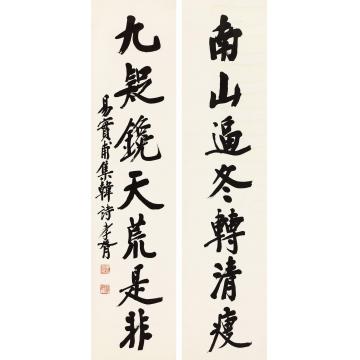 南山逼冬轉清瘦
九疑鑱天荒是非
易實甫集韓詩 孝胥